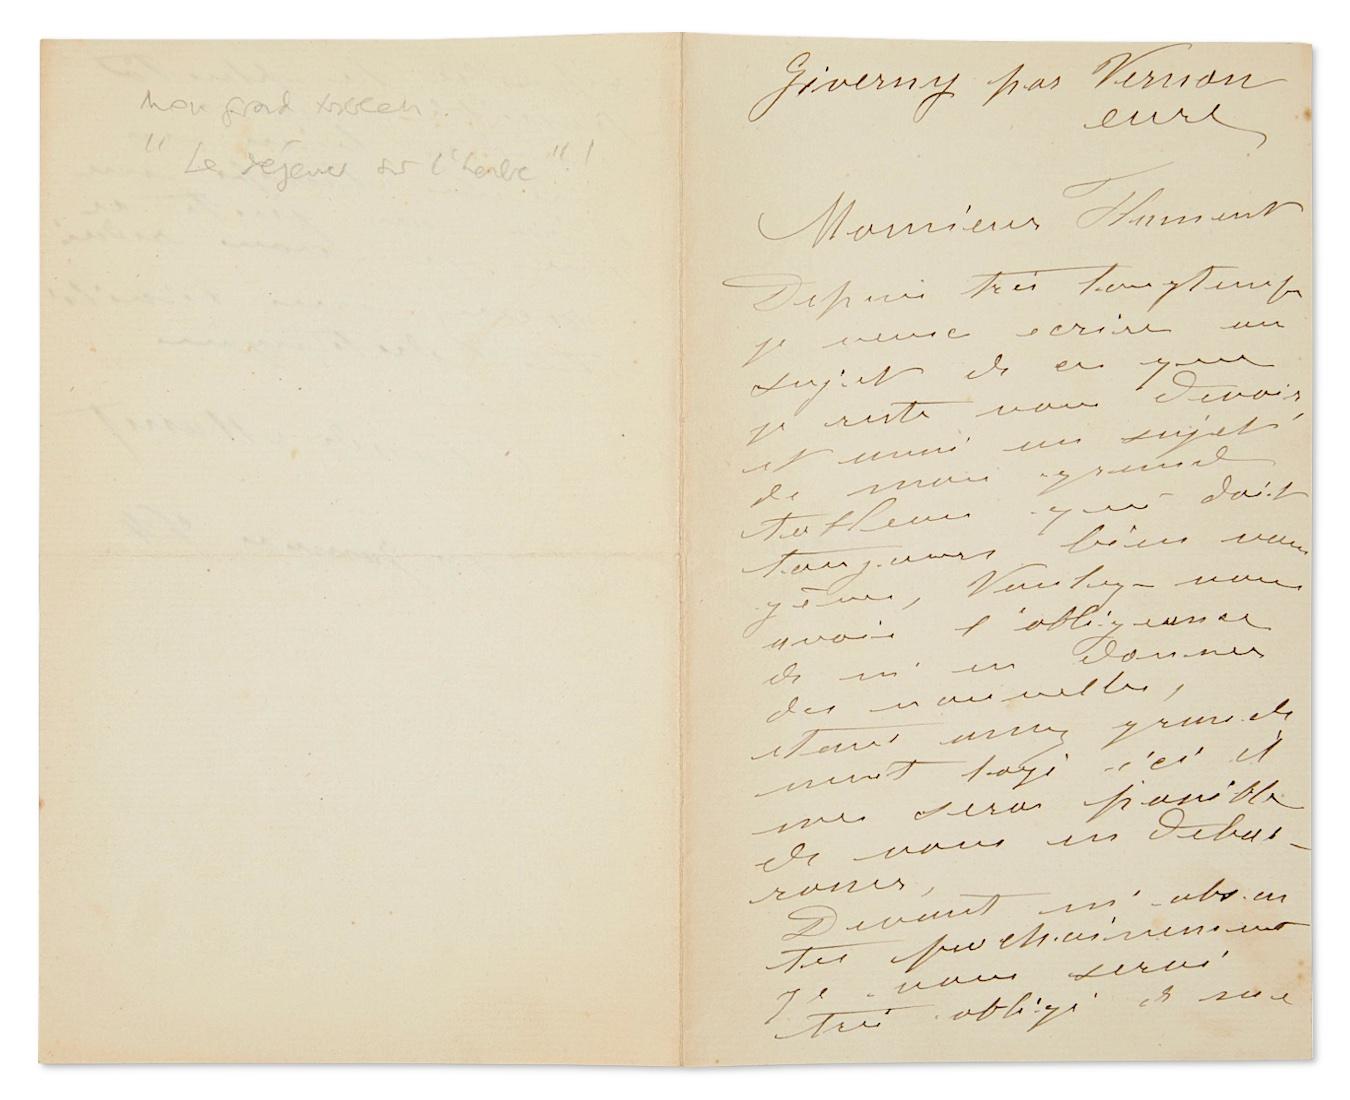 mon grand tableau
" Le déjeuner sur l'herbe " !
Giverny par Vernon
eure
Monsieur Flament
Depuis très longtemps
je veux ecrire au
sujet de ce que
je reste vous devoir
et aussi au sujet
de mon grand
tableau qui doit
toujours bien vous
gêner, Voulez-vous
avoir l'obligeance
de m'en donner
des nouvelles,
etant assez grande
ment logé ici il
me sera possible
de vous en debar-
rasser,
Devant m'absen
ter prochainement
je vous serai
très obligé de me